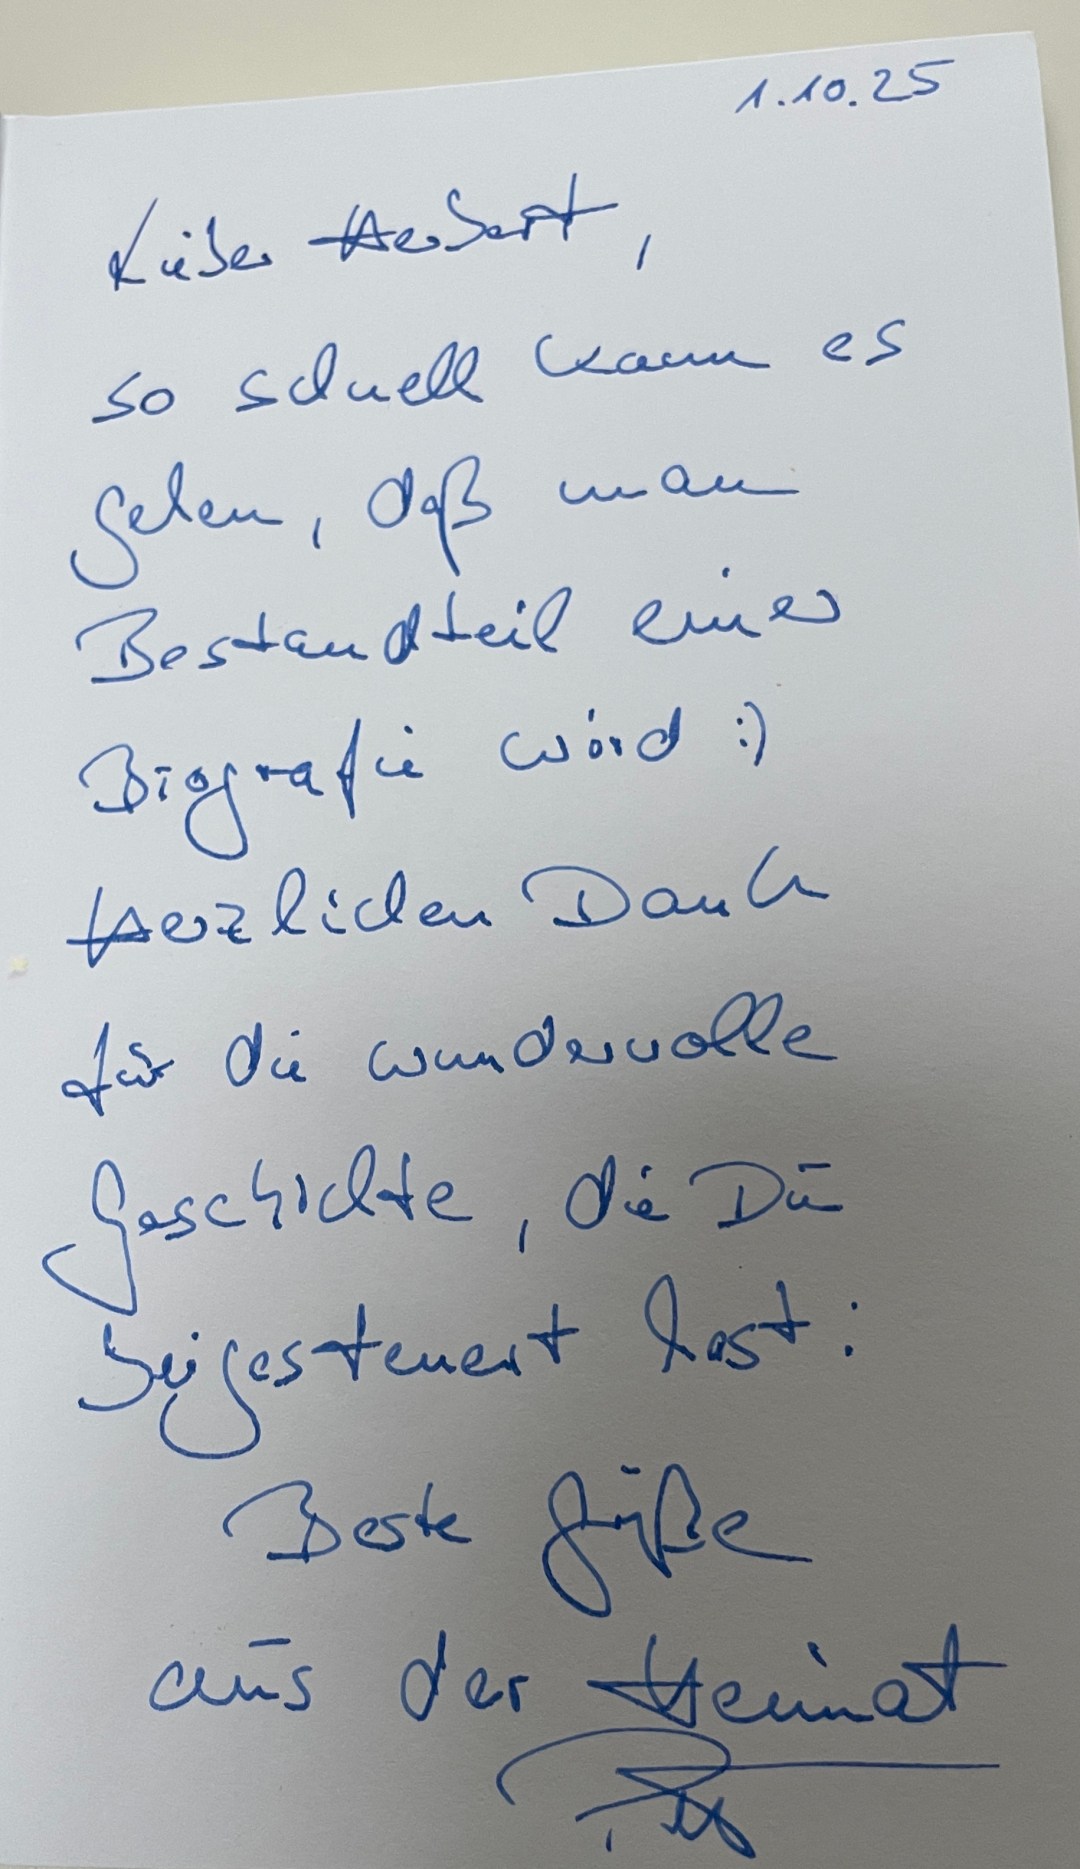 1.10.25
Lieber Herbert,
so schnell kann es
gehen, daß man
Bestandteil einer
Biografie wird :)
Herzlichen Dank
für die wundervolle
Geschichte, die Du
beigesteuert hast:
Beste Grüße
aus der Heimat